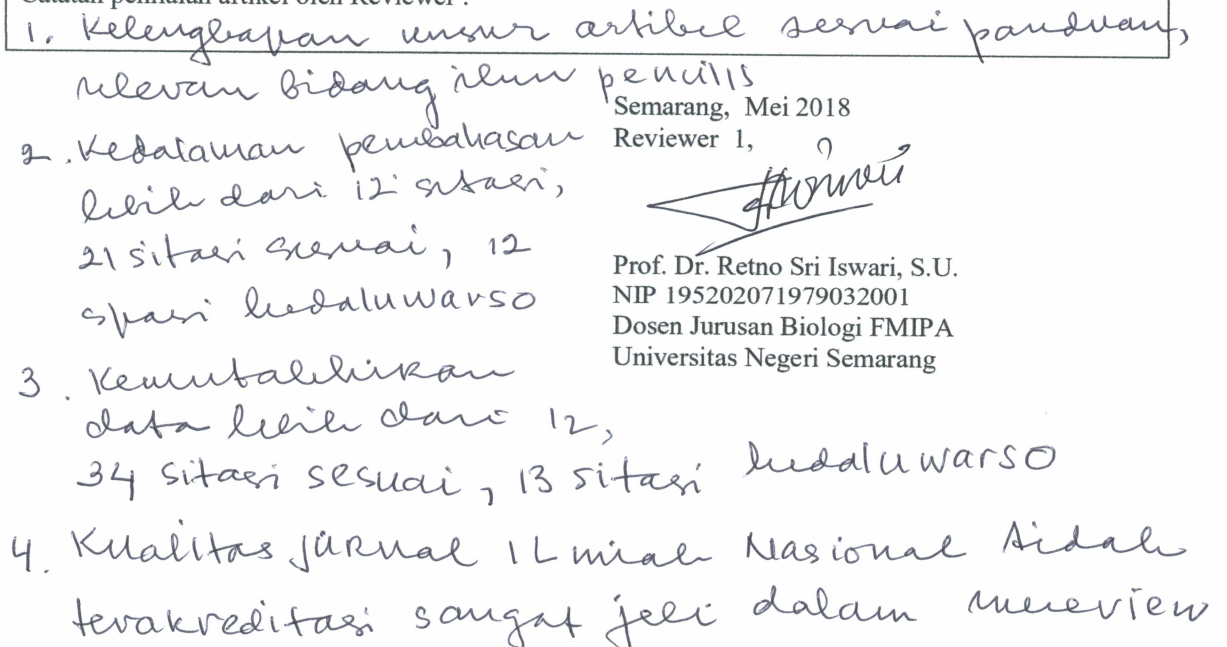 Catatan penilaian artikel oleh Reviewer :
1. Kelengkapan unsur artikel sesuai panduan,
relevan bidang ilmu penulis
2. Kedalaman pembahasan
lebih dari 12 sitasi,
21 sitasi sesuai, 12
kedaluwarso
3. Kemutakhiran
data lebih dari 12,
34 sitasi sesuai, 13 sitasi kedaluwarso
4. Kualitas jurnal ILmiah Nasional tidak
terakreditasi sangat jeli dalam mereview
Semarang, Mei 2018
Reviewer 1,
Prof. Dr. Retno Sri Iswari, S.U.
NIP 195202071979032001
Dosen Jurusan Biologi FMIPA
Universitas Negeri Semarang